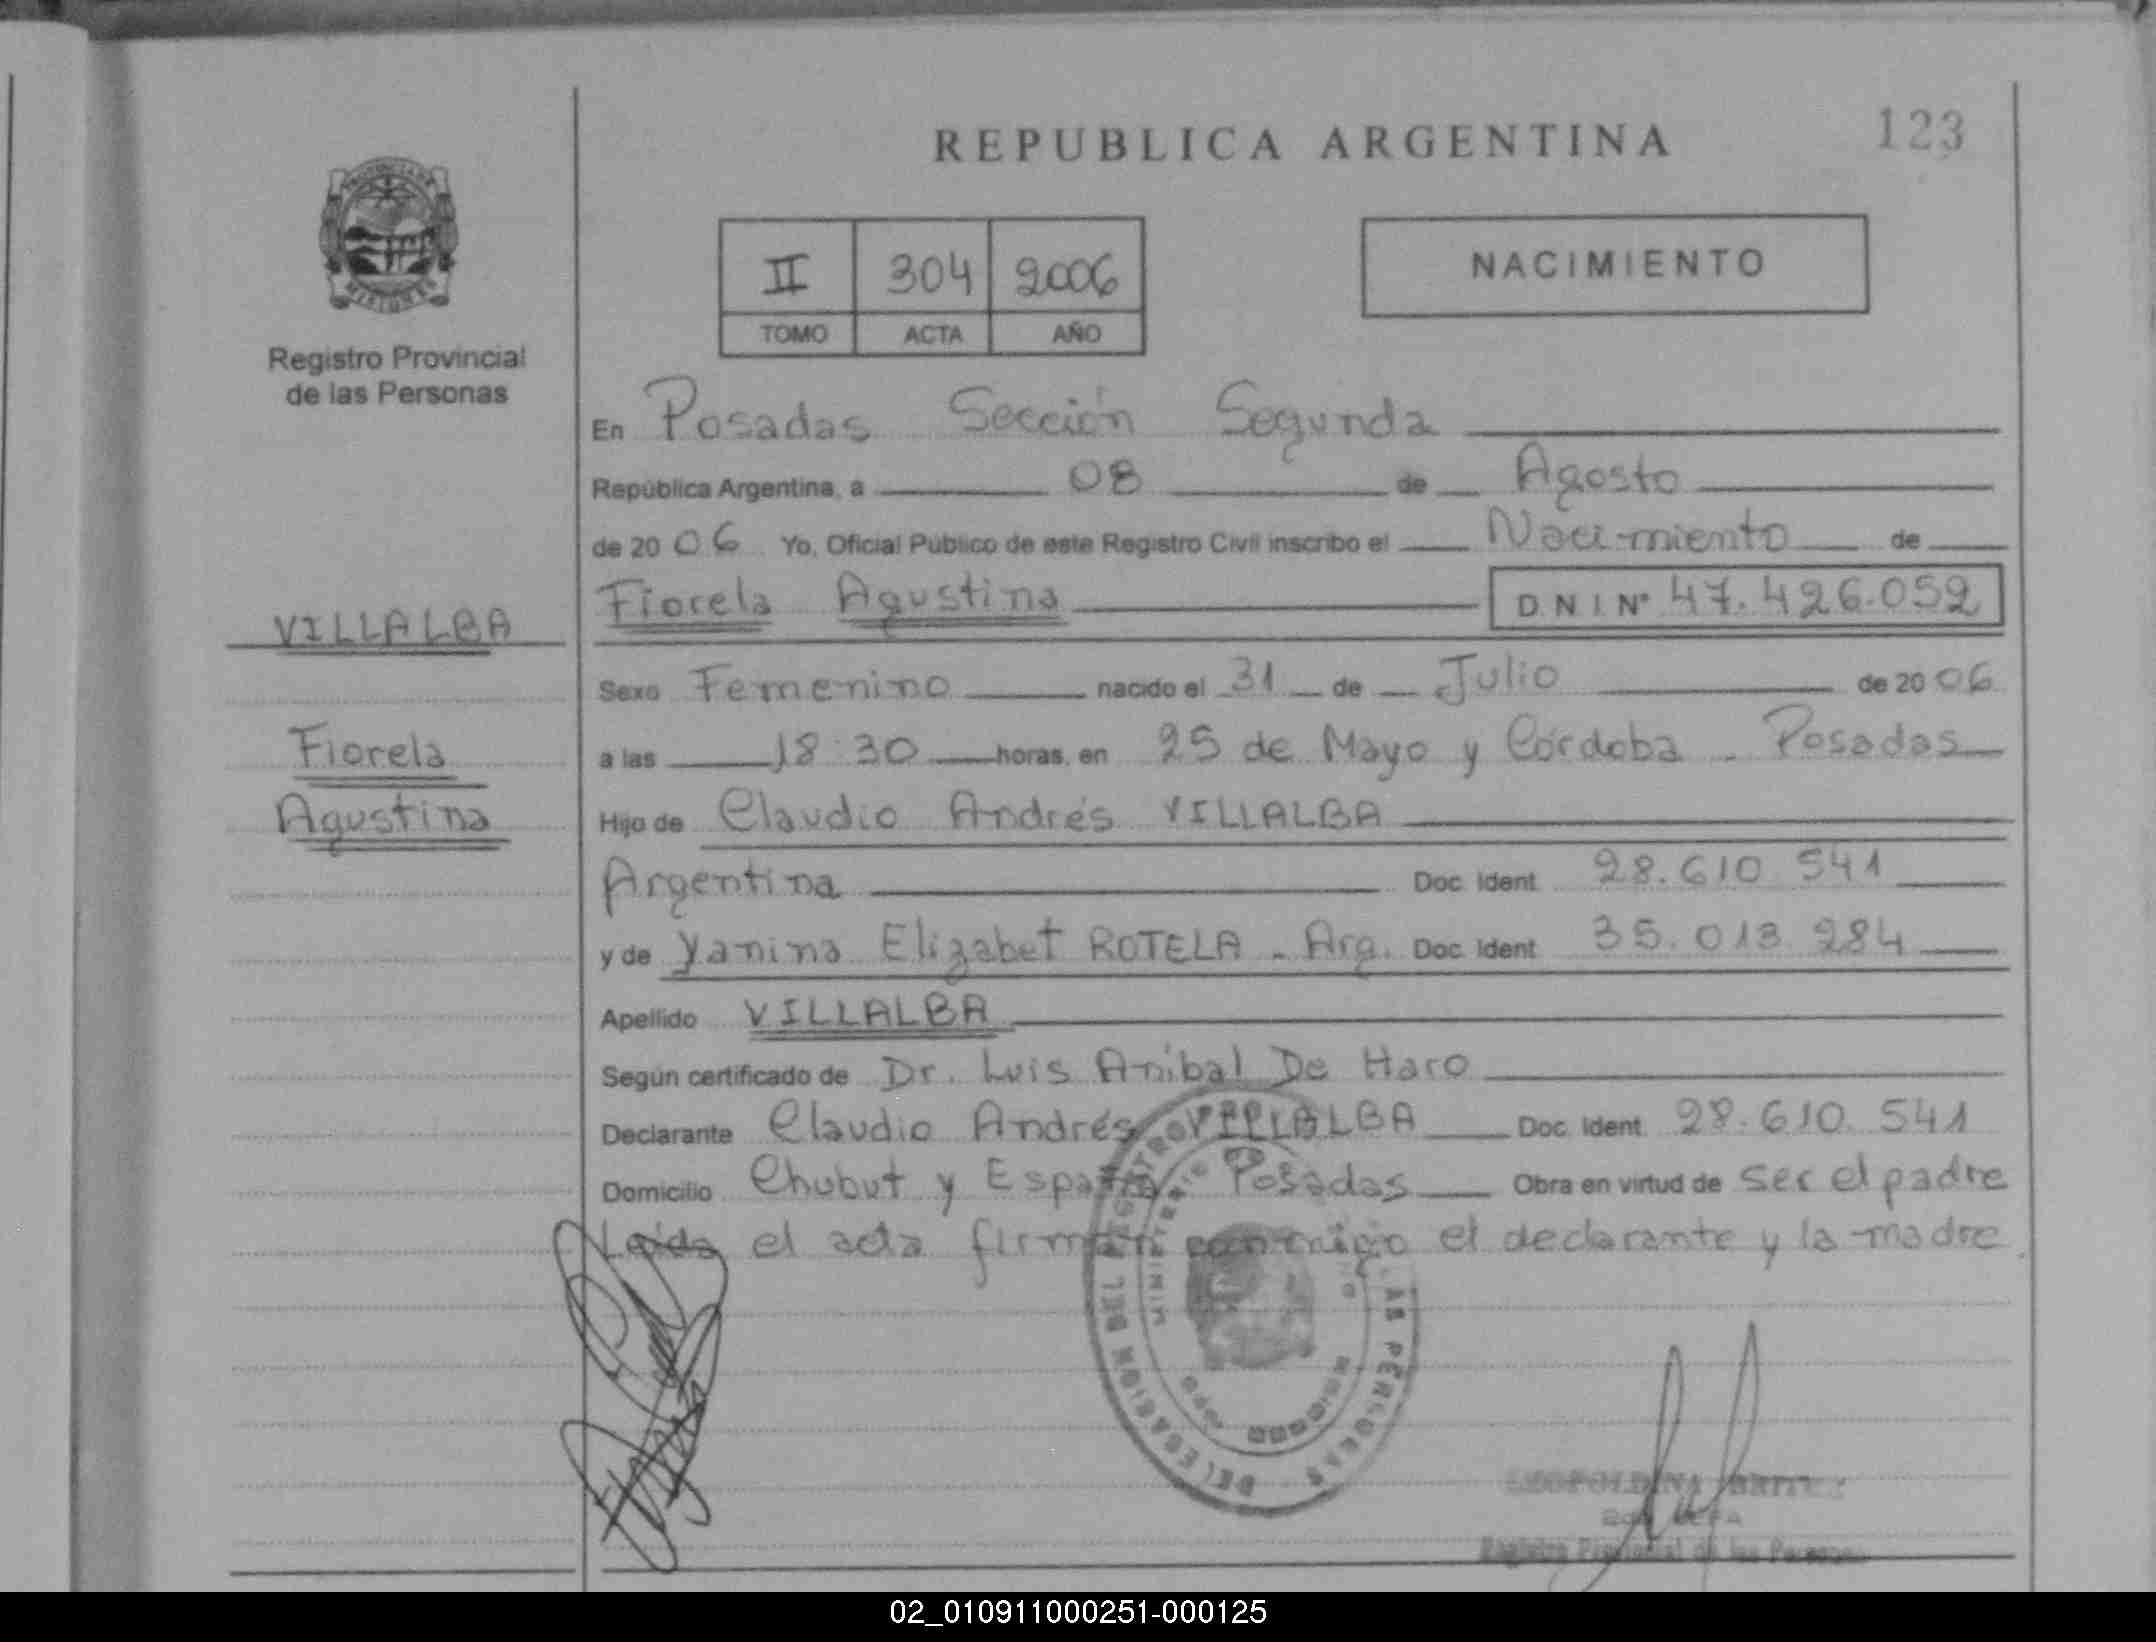 REPUBLICA ARGENTINA
123
PROVINCIA DE
MISIONES
Registro Provincial
de las Personas
II 304 2006
TOMO ACTA AÑO
NACIMIENTO
En Posadas Sección Segunda
República Argentina, a 08 de Agosto
de 2006 Yo, Oficial Público de este Registro Civil inscribo el Nacimiento de
Fiorela Agustina D.N.I. Nº 47.426.052
VILLALBA
Sexo Femenino nacido el 31 de Julio de 2006
Fiorela
a las 18:30 horas, en 25 de Mayo y Córdoba - Posadas
Agustina
Hijo de Claudio Andrés VILLALBA
Argentina Doc. Ident. 28.610.541
y de Yanina Elizabet ROTELA - Arg. Doc. Ident. 35.013.284
Apellido VILLALBA
Según certificado de Dr. Luis Anibal De Haro
Declarante Claudio Andrés VILLALBA Doc. Ident. 28.610.541
Domicilio Chubut y España Posadas Obra en virtud de ser el padre
Leida el acta firman conmigo el declarante y la madre.
DELEGACION DEL REGISTRO LAS PERSONAS
LEOPOLDINA
Registro Provincial de las Personas
02_010911000251-000125